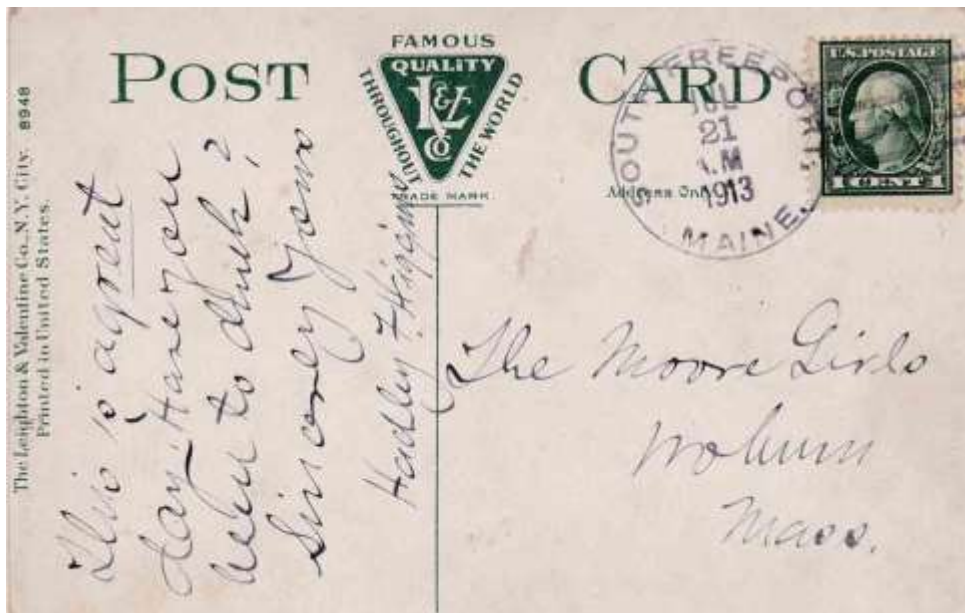 The Leighton & Valentine Co., N.Y. City. 8948
Printed in United States.
POST CARD
FAMOUS
QUALITY
L&V
CO
THROUGHOUT THE WORLD
TRADE MARK
Address Only
SOUTH FREEPORT,
JUL
21
AM
1913
MAINE.
U.S. POSTAGE
1 CENT 1
This is a great
day. Have you
been to
Sincerely Yours
Hadley Higgins
The Moore Girls
Woburn
Mass.